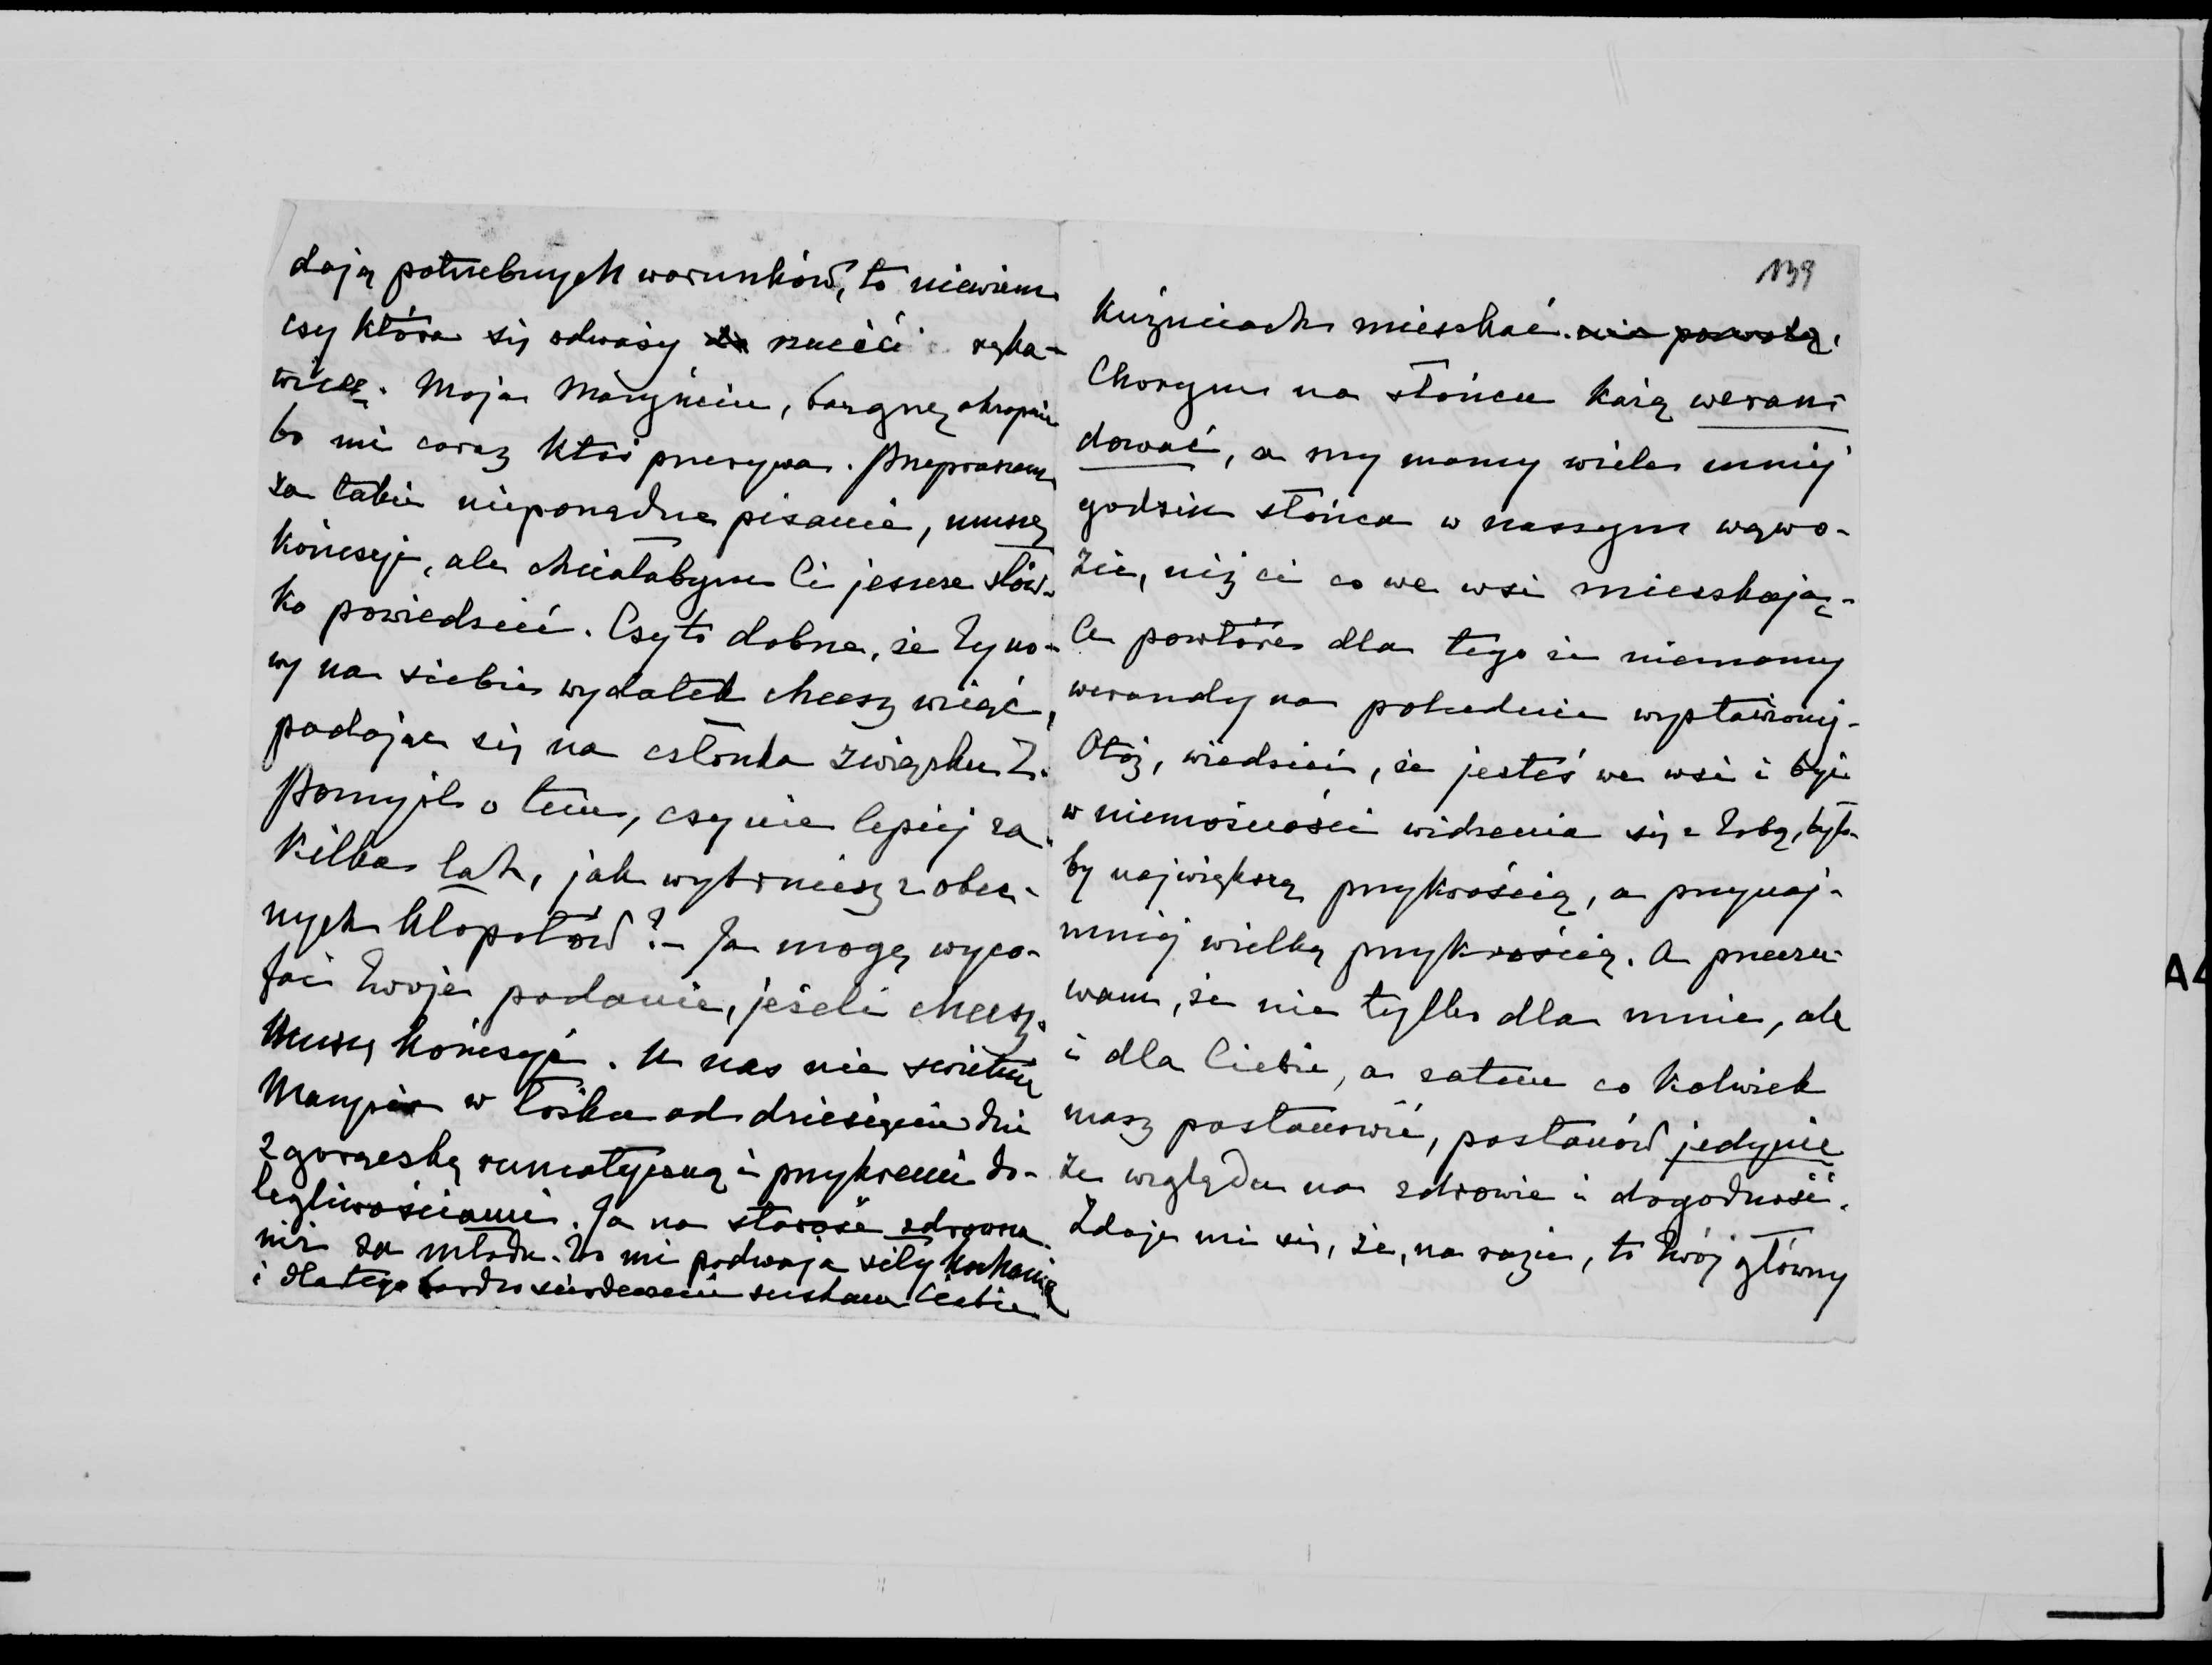 dają potrzebnych warunków, to niewiem
czy która się odważy rzucić ręka-
wicę. Moja Maryniciu, bazgrzę okropnie
bo mi coraz ktoś przerywa. Przepraszam
za takie nieporządne pisanie, muszę
kończyć, ale chciałabym Ci jeszcze słów-
ko powiedzieć. Czy to dobrze, że Ty no-
wy na siebie wydatek chcesz wziąć,
podając się na członka związku Z.
Pomyśl o tem, czy nie lepiej za
kilka lat, jak wybrniesz z obec-
nych kłopotów? - Ja mogę wyco-
fać Twoje podanie, jeżeli chcesz.
Muszę kończyć. U nas nie świetnie
Marynia w łóżku od dziesięciu dni
z gorączką rumatyczną i przykremi do-
legliwościami. Ja na starość zdrowsza
niż za młodu. To mi podwaja siły kochania
i dlatego bardzo serdecznie ściskam Ciebie
139
Kuźnicach mieszkać. nie pozwolą.
Chorym na słońcu każą weran-
dować, a my mamy wiele mniej
godzin słońca w naszym wąwo-
zie, niż ci co we wsi mieszkają-
a powtóre dla tego że niemamy
werandy na południe wystawionej.
Otóż, wiedzieć, że jesteś we wsi i być
w niemożności widzenia się z Tobą, było-
by największą przykrością, a przynaj-
mniej wielką przykrością. A przeczu-
wam, że nie tylko dla mnie, ale
i dla Ciebie, a zatem co kolwiek
masz postanowić, postanów jedynie
ze względu na zdrowie i dogodność.
Zdaje mi się, że, na razie, to Twój główny
A4